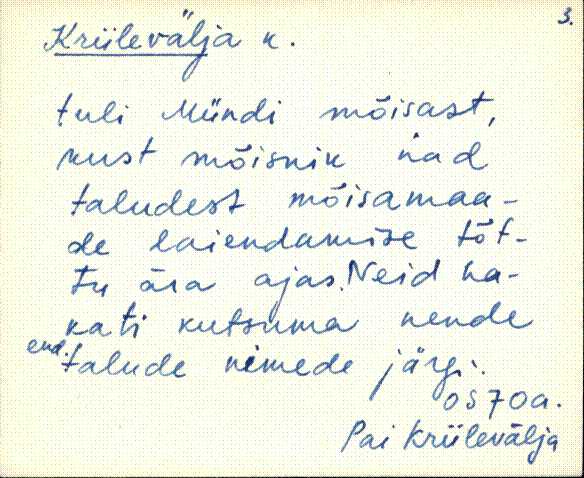 3.
Kriilevälja k.
tuli Mündi mõisast,
kust mõisnik nad
taludest mõisamaa-
de laiendamise tõt-
tu ära ajas. Neid ha-
kati kutsuma nende
end. talude nimede järgi.
os 70a.
Pai Kriilevälja